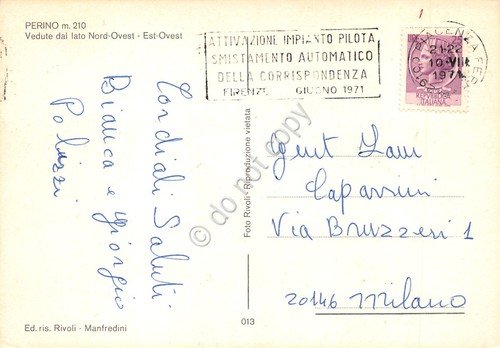 PERINO m. 210
Vedute dal lato Nord-Ovest - Est-Ovest
ATTIVAZIONE IMPIANTO PILOTA
SMISTAMENTO AUTOMATICO
DELLA CORRISPONDENZA
FIRENZE GIUGNO 1971
PIACENZA FERR
21-22
10 VIII
1971
Cordiali Saluti
Bianca e Giorgio
Polizzi
Foto Rivoli - Riproduzione vietata
do not copy
Gent Fam
Caparrini
Via Bruzzesi 1
20146 Milano
Ed. ris. Rivoli - Manfredini
013